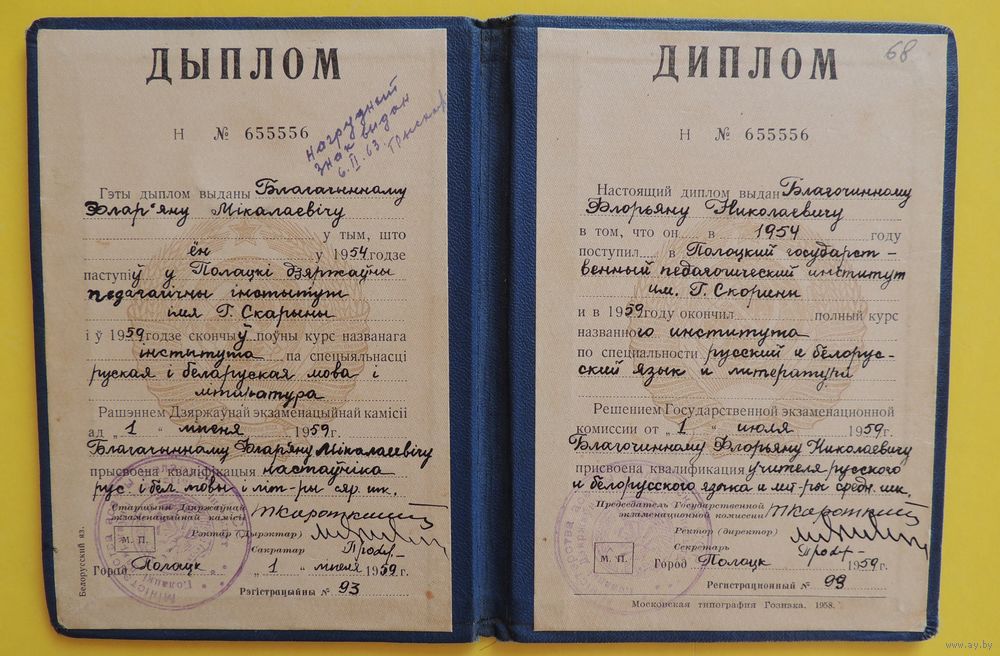 ДЫПЛОМ
Н № 655556
нагрудный
знак выдан
6.II.63.
Гэты дыплом выданы Благачыннаму
Флар'яну Мікалаевічу
у тым, што
ён у 1954 годзе
паступіў у Полацкі дзяржаўны
педагагічны інстытут
імя Г. Скарыны
і ў 1959 годзе скончыў поўны курс названага
інстітута па спецыяльнасці
руская і беларуская мова і
літаратура
Рашэннем Дзяржаўнай экзаменацыйнай камісіі
ад „1" ліпеня 1959 г.
Благачыннаму Флар'яну Мікалаевічу
прысвоена кваліфікацыя настаўніка
рус. і бел. мовы і літ-ры сяр. шк.
Старшыня Дзяржаўнай
экзаменацыйнай камісіі
Рэктар (Дырэктар)
Сакратар
М. П.
Горад Полацк „1" ліпеня 1959 г.
Рэгістрацыйны № 93
Белорусский яз.
68
ДИПЛОМ
Н № 655556
Настоящий диплом выдан Благочинному
Флорьяну Николаевичу
в том, что он в 1954 году
поступил в Полоцкий государст-
венный педагогический институт
им. Г. Скорины
и в 1959 году окончил полный курс
названного института
по специальности русский и белорус-
ский язык и литература
Решением Государственной экзаменационной
комиссии от „1" июля 1959 г.
Благочинному Флорьяну Николаевичу
присвоена квалификация учителя русского
и белорусского языка и лит-ры средн. шк.
Председатель Государственной
экзаменационной комиссии
Ректор (директор)
Секретарь
М. П.
Город Полоцк 1959 г.
Регистрационный № 93
Московская типография Гознака. 1958.
www.ay.by